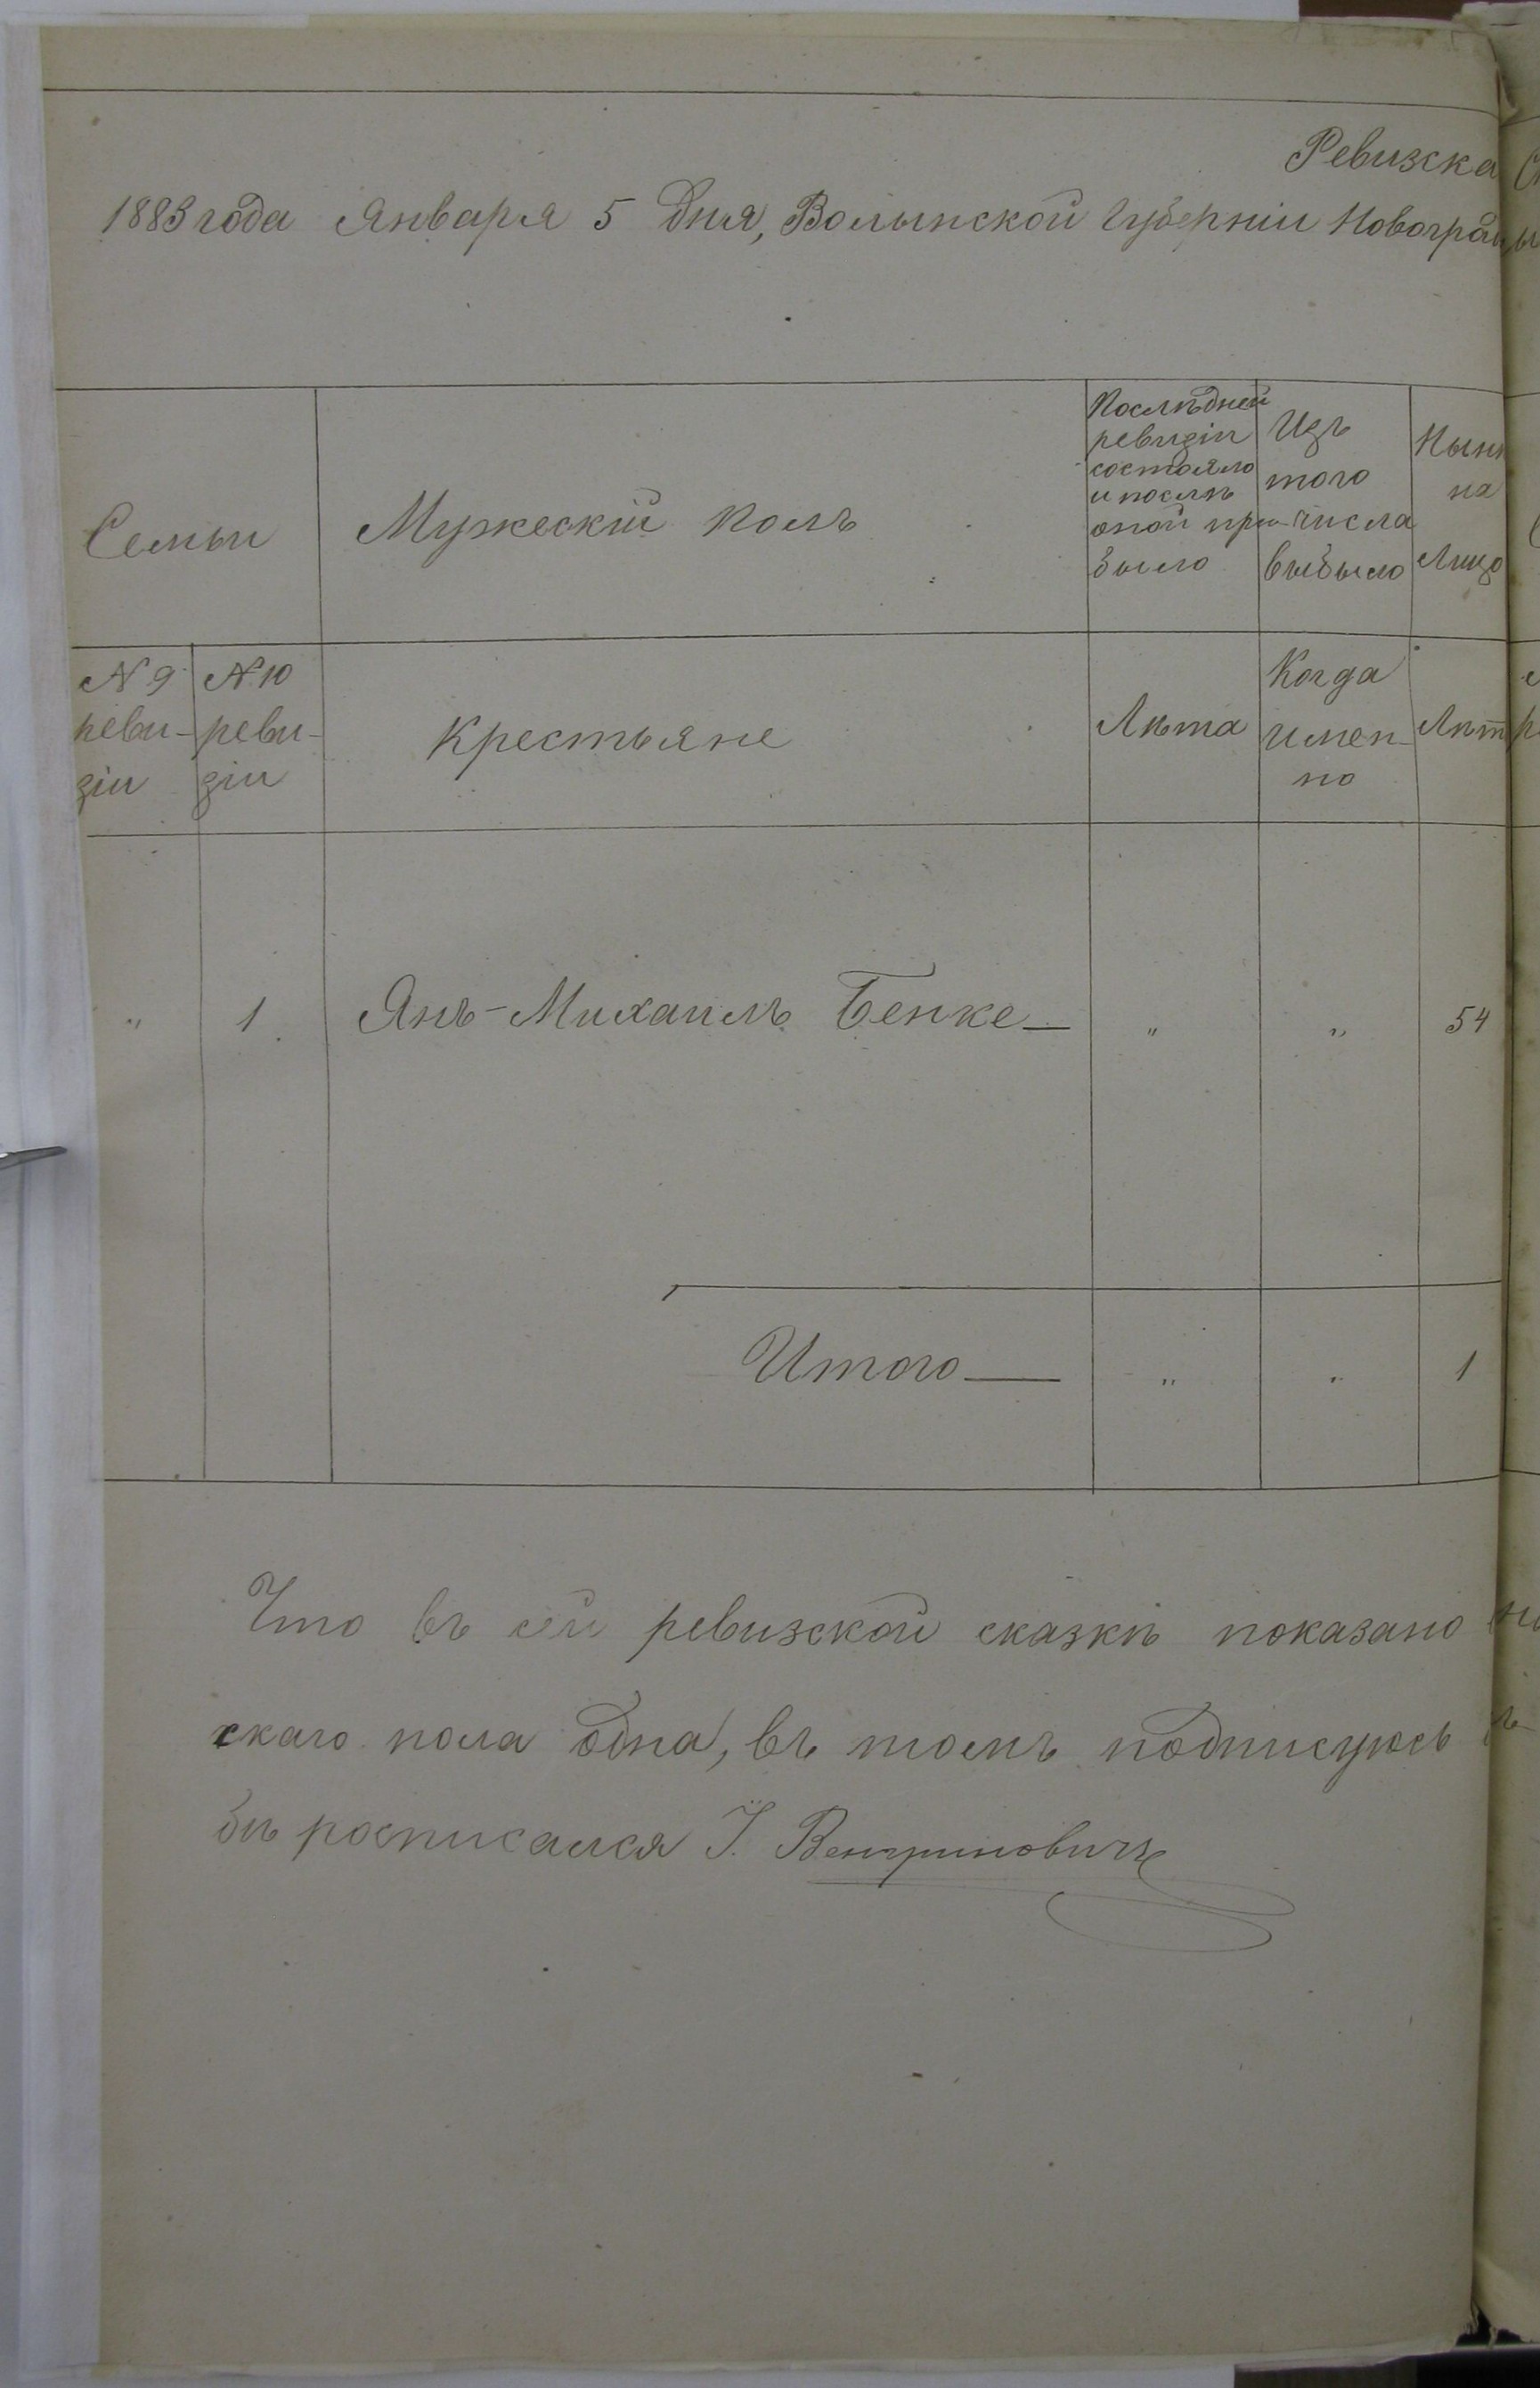 Ревизска
1883 года Января 5 дня, Волынской Губерніи Новоград
Семьи
Мужескій полъ
Послѣдней
ревизіи
состояло
и послѣ
оной при-
было
Изъ
того
числа
выбыло
Нынѣ
на
Лицо
N 9
реви-
зіи
N 10
реви-
зіи
Крестьяне
Лѣта
Когда
имен-
но
Лѣт
" 1 Янъ-Михаилъ Бенке — " " 54
Итого — " " 1
Что въ сей ревизской сказкѣ показано
скаго пола одна, въ томъ подписуюсь
бѣ росписался І. Венгриновичъ